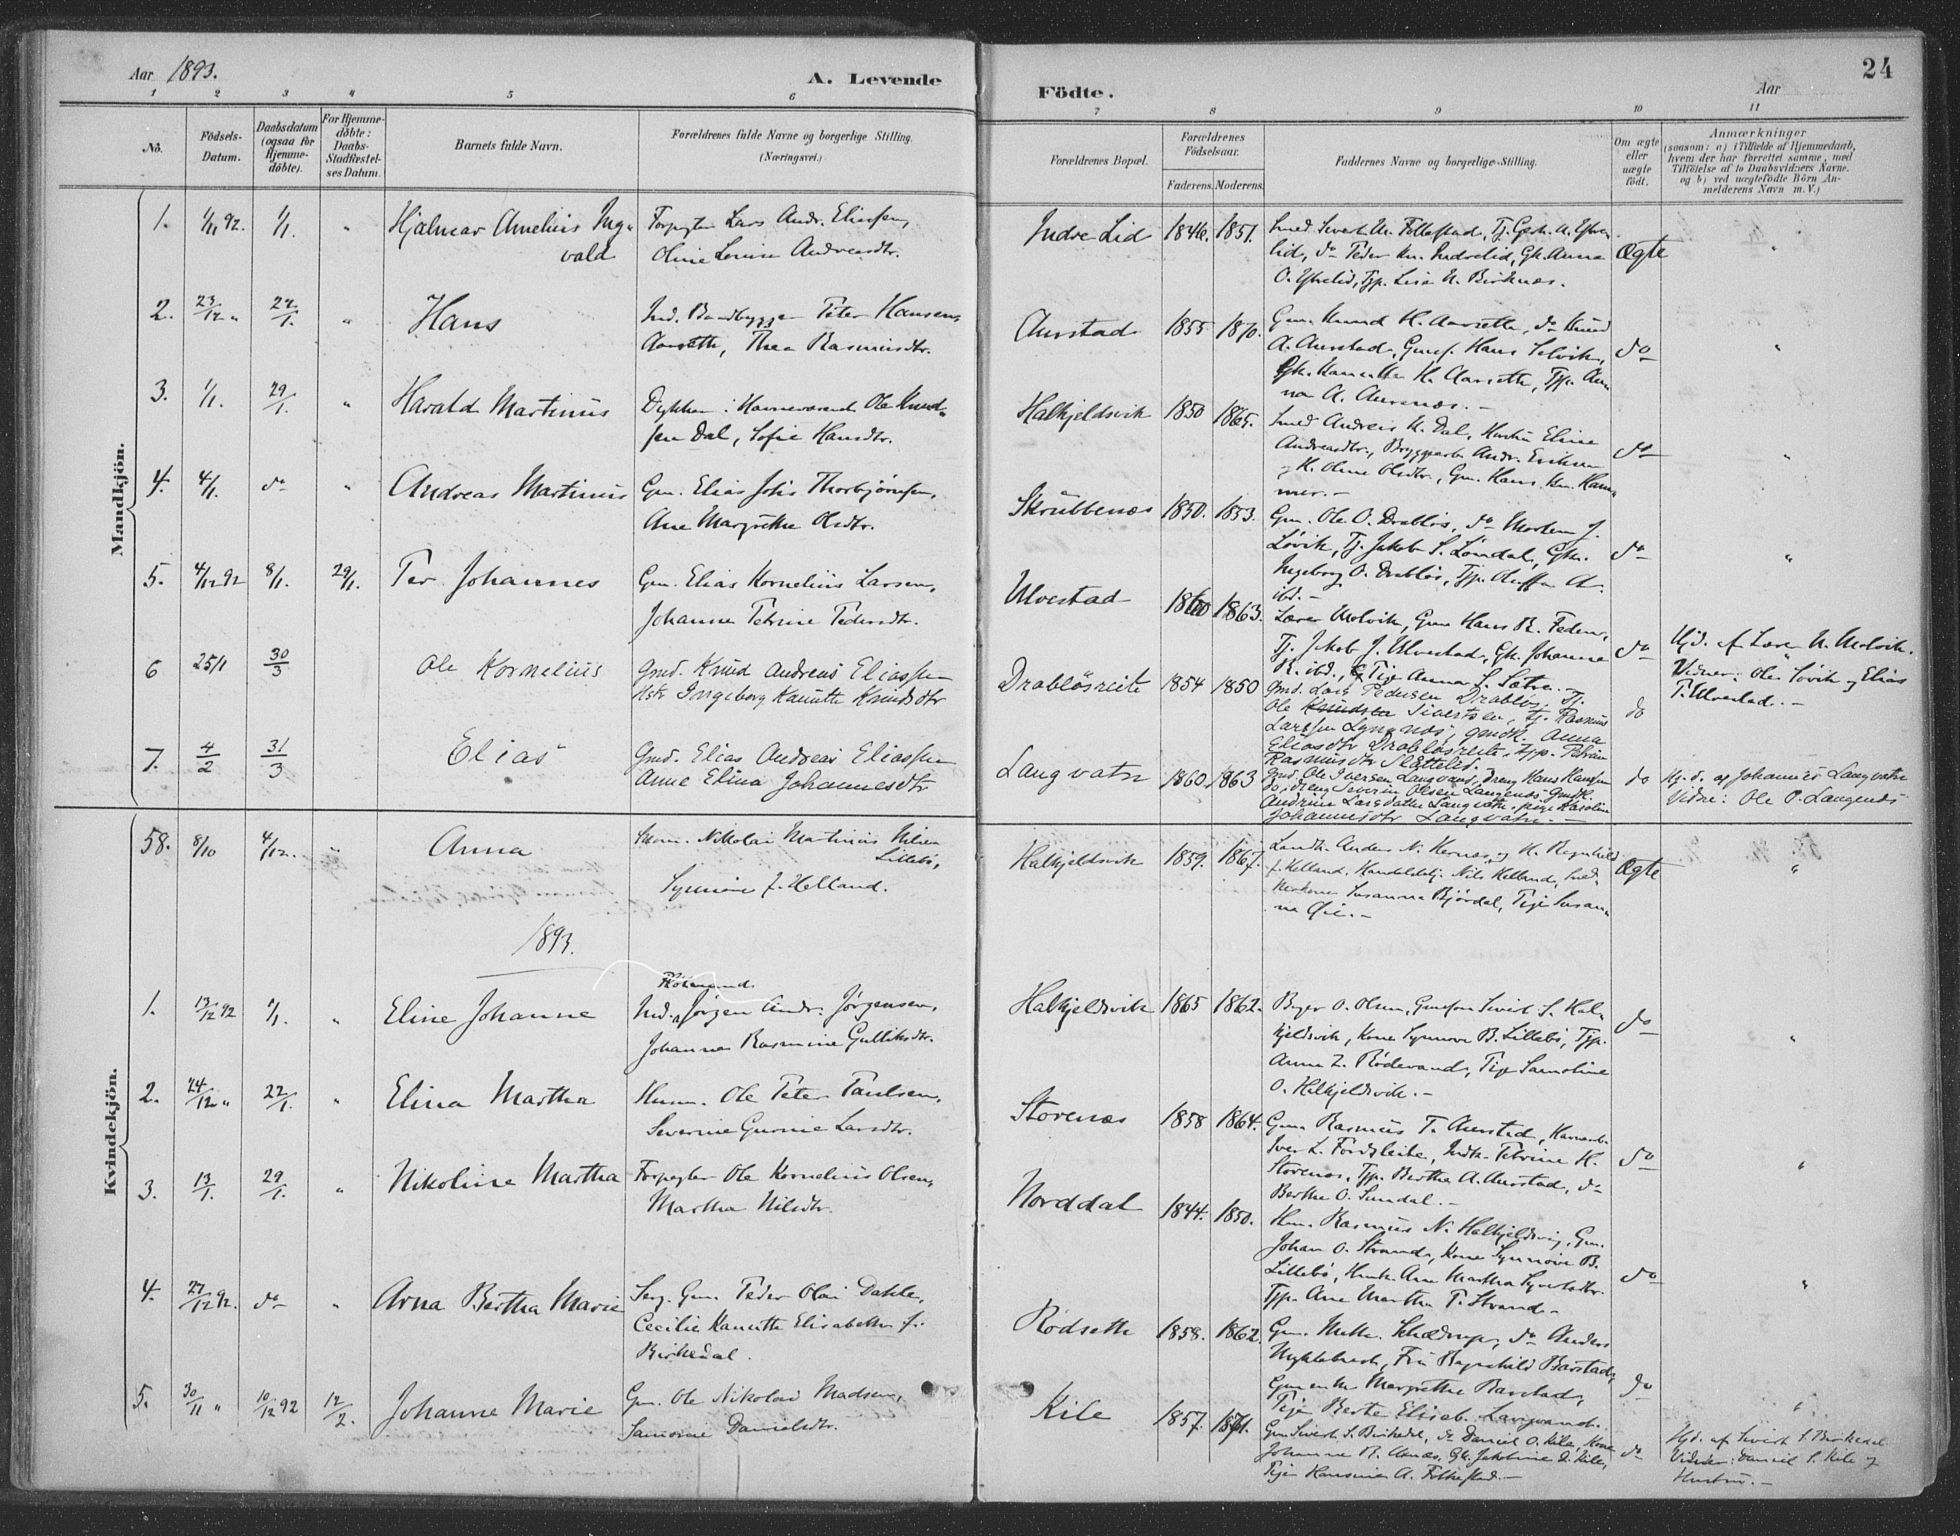 Aar 1893.
A. Levende
Födte.
Aar
24
1 2 3 4 5 6 7 8 9 10 11
No.
Födsels-
Datum.
Daabsdatum
(ogsaa for
Hjemme-
döbte).
For Hjemme-
döbte:
Daabs-
Stadfæstel-
ses Datum.
Barnets fulde Navn.
Forældrenes fulde Navne og borgerlige Stilling.
(Næringsvei.)
Forældrenes Bopæl.
Forældrenes
Födselsaar.
Faderens. Moderens.
Faddernes Navne og borgerlige Stilling.
Om ægte
eller
uægte
födt.
Anmærkninger
(saasom: a) i Tilfælde af Hjemmedaab,
hvem der har forrettet samme, med
Tilföielse af to Daabsvidners Navne.
og b) ved uægtefödte Börn An-
melderens Navn m. V.)
Mandkjön.
1. 1/11 92. 1/1. "
Hjalmar Amelius Ing-
vald
Forpagter Lars Andr. Eliasen,
Oline Lovise Andreasdtr.
Indre Lid 1846. 1851.
Ægte "
2. 23/12 " 22/1. "
Hans
Ind. Baadbygger Peter Hansen
Aarseth, Thea Rasmusdtr.
Aurstad 1855 1870.
Gm. Knud H. Aarseth, do Knud
A. Aurstad, Gmsf. Hans Selvik,
Gk. Kanutte H. Aarseth, Tjp. An-
na A. Aurenæs.-
do "
3. 1/1. 29/1. "
Harald Martinus
Dykker i Havnevæsenet Ole Knud-
sen Dal, Sofie Hansdtr.
Halkjeldsvik 1850 1865.
Smed Andreas K. Dal, Hustru Eline
Andreasdtr., Bryggearb. Andr. Eriksen
og K. Oline Olsdtr., Gm. Hans Kn. Ham-
mer.-
do "
4. 4/1. do "
Andreas Martinus
Gm. Elias Johs Thorbjørnsen,
Ane Margrethe Olsdtr.
Skrubbenæs 1850. 1853.
Gm. Ole O. Drabløs, do Morten J.
Løvik, Tj. Jakob S. Løndal, Gk.
Ingeborg O. Drabløs, Tjp. A.
ibd.-
do "
5. 4/12 92 8/1. 29/1.
Per Johannes
Gm. Elias Kornelius Larsen,
Johanne Petrine Pedersdtr.
Ulvestad 1860 1863.
Lærer Molvik, Gm Hans R.
Tj. Jakob J. Ulvestad, Gk. Johanne
R. ibd., Pige Anna S. Sætre.-
do
Hjd. af Lærer N. Molvik.
Vidner: Ole Løvik og Elias
P. Ulvestad.-
6 25/1 30/3
Ole Kornelius
Gmd. Knud Andreas Eliassen
Hstr Ingeborg Kanutte Knudsdtr
Drabløsreite 1854 1850
Gmd. Lars Pedersen Drabløs, Tj.
Ole Sivertsen, Tj. Rasmus
Larssen Lyngnes, gmdk. Anna
Eliasdtr Drabløsreite, Tjp. Petrine
Rasmusdtr Slettelid.
do
7. 4/2 31/3
Elias
Gmd. Elias Andreas Eliassen
Anne Elina Johannesdtr
Langvatn 1860 1863
Gmd. Ole Iversen Langvand, Dreng Hans Hansen
do, dreng Severin Olsen Langenes, Gmdk.
Andrine Larsdatter Langvatn, pige Karoline
Johannesdtr Langvatn.-
do
Hj.d. af Johannes Langvatn
Vidne: Ole P. Langenes
Kvindekjön.
58. 8/10 4/12. "
Anna
Nikolai Martinus Nilsen
Lillebø,
Synnøve f. Helland.
Halkjeldsvik 1859. 1867.
Landh. Anders N. Kernæs, og K. Regnhild
f. Helland, Handelsbtj. Nils Helland, Smed-
kone Susanna Bjørdal, Pige Susan-
na Øie.-
Ægte "
1893.
1. 13/12 92 1/1. "
Eline Johanne
Ind. Jørgen Andr. Jørgensen,
Johanne Rasmine Gulliksdtr.
Halkjeldsvik 1865 1862.
O. Olsen, Gmsøn Sivert S. Hal-
kjeldsvik, Kone Synnøve B. Lillebø, Tjp.
Anne Z. Rødevand, Pige Samoline
O. Halkjeldsvik.-
do "
2. 24/12 " 22/1. "
Elina Martha
Husm. Ole Peter Paulsen,
Severine Gurine Larsdtr.
Storenæs 1858 1864.
Gm Rasmus T. Aurstad, Havnearb.
Iver L. Indk. Petrine H.
Storenæs, Tjp. Berthe A. Aurstad, do
Berthe O. Sundal.-
do "
3. 13/1. 29/1. "
Nikoline Martha
Forpagter Ole Kornelius Olsen,
Martha Nilsdtr.
Norddal 1844. 1850.
Hm. Rasmus N. Halkjeldsvig, Gm.
Johan O. Strand, Kone Synnøve B.
Lillebø, Hmk. Ane Martha Syvertsdtr.
Tjp. Ane Martha P. Strand.-
do "
4. 27/12 92. do "
Arna Bertha Marie
Serg. Gm. Peder Olai Dahle,
Cecilie Kanutte Elisabeth f.
Birkedal.
Rødseth 1858. 1862
Gm. do Anders
Myklebust, Fru Ragnhild Barstad,
Gmenke Margrethe Barstad,
Pige Berte Elisab. Langvand.
do "
5. 30/11 " 10/12 92 12/2.
Johanne Marie
Gm. Ole Nikolai Madsen,
Samoine Danielsdtr.
Kile 1857. 1861.
Gm Sivert S. Birkedal, do Daniel O. Kile, Kone
Johanne R. Aanæs, Gk. Jakobine D. Kile,
Pige Hansine A. Folkestad.-
do
Hjd. af Sivert S. Birkedal
Vidner: Daniel S. Kile og
Hustru.-